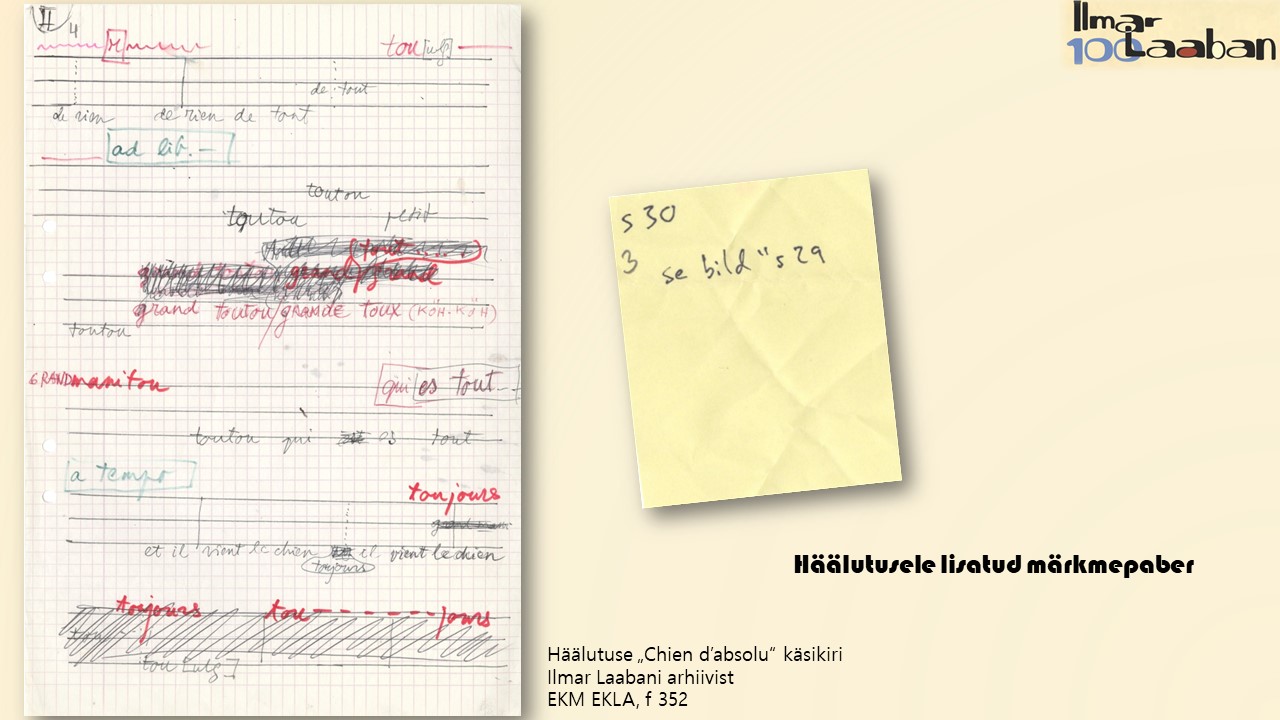 II 4
r tou[ulf]
de tout
de rien de rien de tout
ad lib. –
toutou
toutou petit
(tout
grand/grand
grand toutou/GRANDE toux (KÖH-KÖH)
toutou
GRANDmanitou qui es tout –
toutou qui es tout
a tempo
toujours
et il vient le chien il vient le chien
toujours
toujours tou – – – – – – jours
Ilmar
100 Laaban
s 30
3 se bild " s 29
Häälutusele lisatud märkmepaber
Häälutuse „Chien d’absolu“ käsikiri
Ilmar Laabani arhiivist
EKM EKLA, f 352